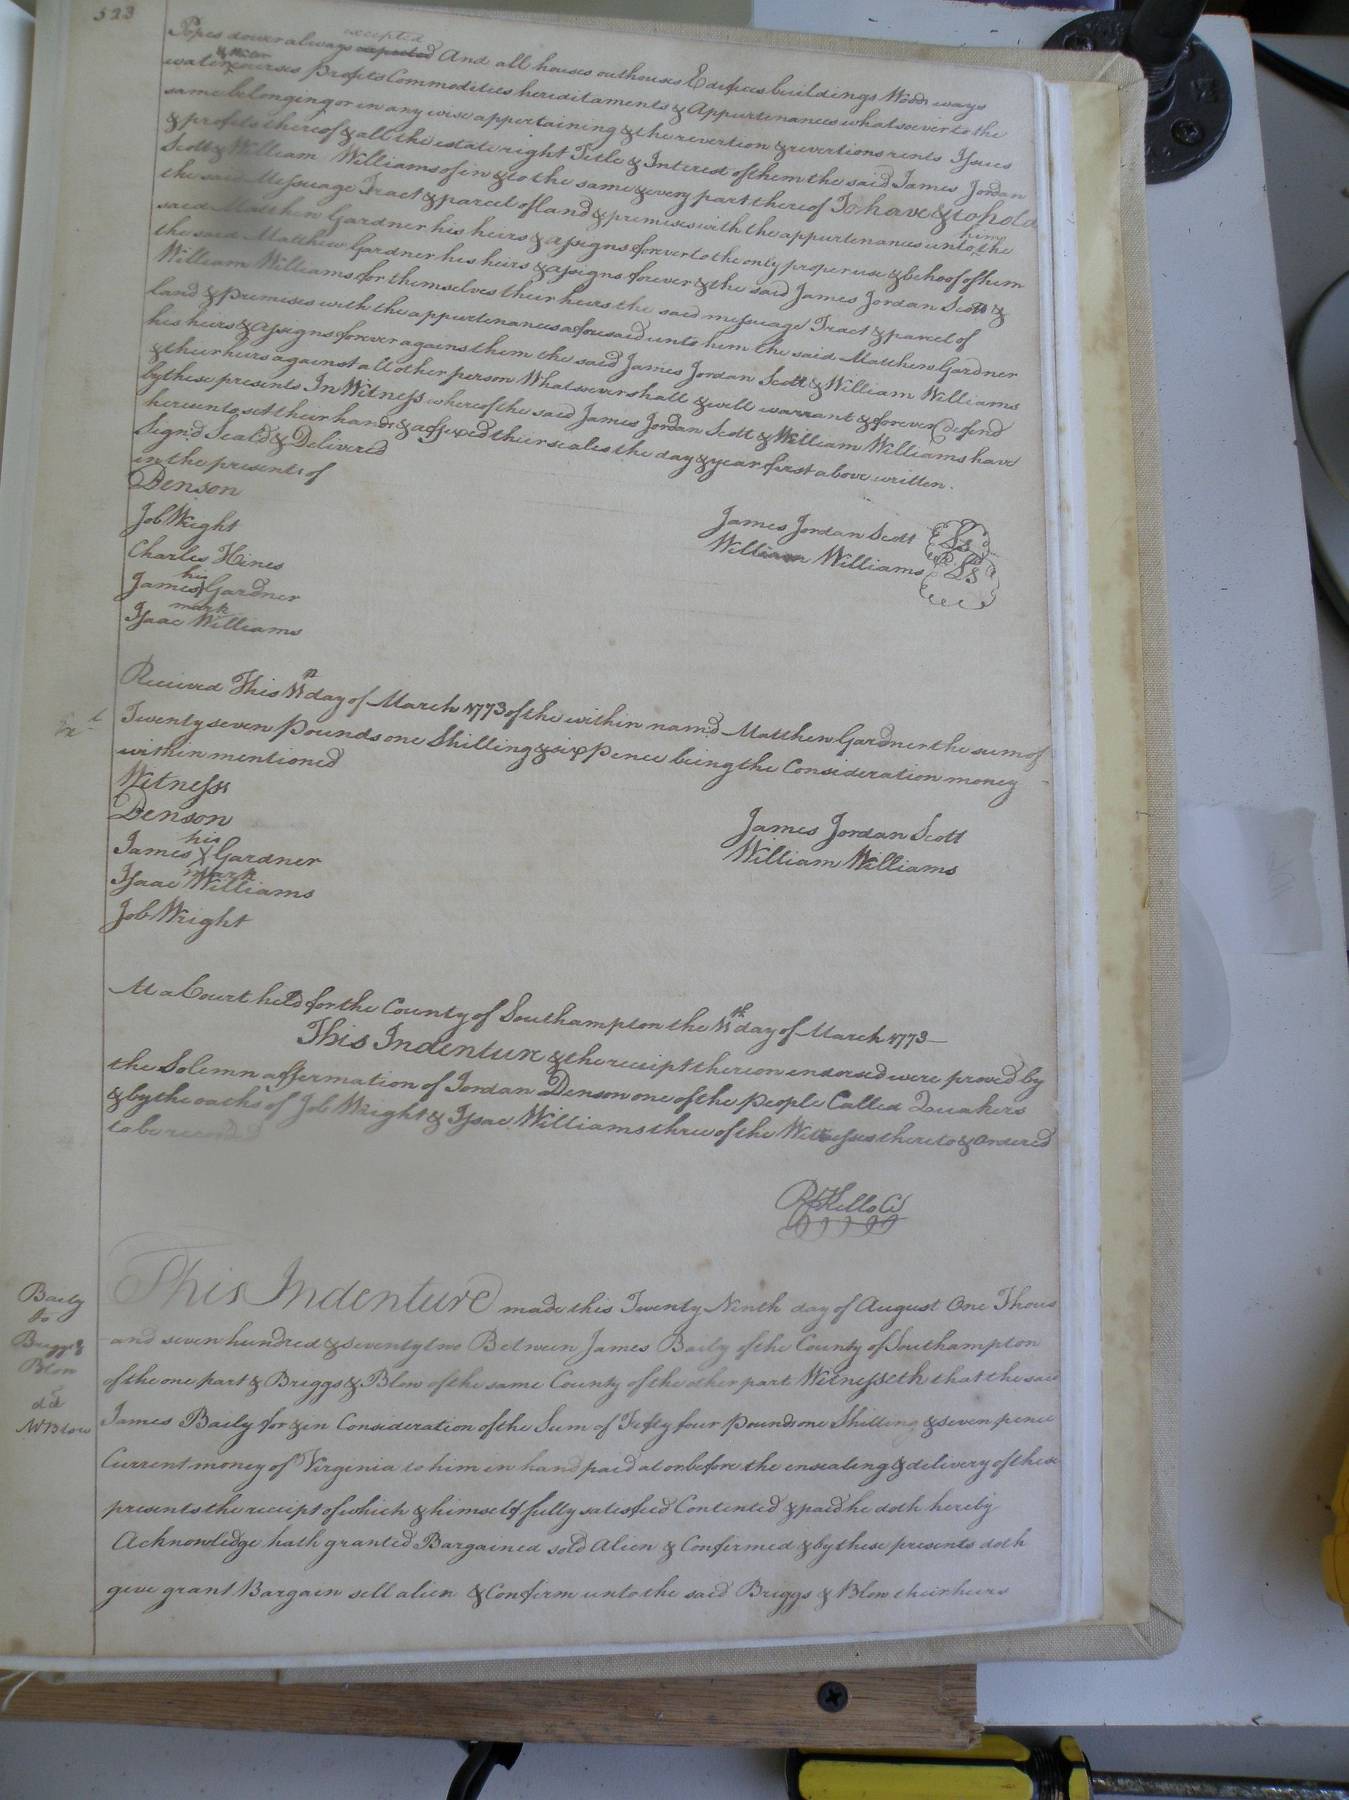 523
Popes dower always excepted And all houses outhouses Edifices buildings Woods ways
water & Watercourses Profits Commodities hereditaments & Appurtenances whatsoever to the
same belonging or in any wise appertaining & the revertion & revertions rents Issues
& profits thereof & all the estate right Title & Interest of them the said James Jordan
Scott & William Williams of in & to the same & every part thereof To have & to hold
the said Messuage Tract & parcel of land & premises with the appurtenances unto him the
said Matthew Gardner his heirs & assigns forever to the only proper use & behoof of him
the said Matthew Gardner his heirs & assigns forever & the said James Jordan Scott &
William Williams for themselves their heirs the said messuage Tract & parcel of
land & premises with the appurtenances aforesaid unto him the said Matthew Gardner
his heirs & assigns forever against them the said James Jordan Scott & William Williams
& their heirs against all other person Whatsoever shall & will warrant & forever Defend
by these presents In Witness whereof the said James Jordan Scott & William Williams have
hereunto set their hands & affixed their seales the day & year first above written.
Signd Seald & Delivered
in the presents of
Denson
Job Wright
Charles Hines
James his mark Gardner
Isaac Williams
James Jordan Scott Ls
William Williams Ls
Received This 11th day of March 1773 of the within namd Matthew Gardner the sum of
Twenty seven Pounds one Shilling & six Pence being the Consideration money
within mentioned
Witness
Denson
James his X mark Gardner
Isaac Williams
Job Wright
James Jordan Scott
William Williams
At a Court held for the County of Southampton the 11th day of March 1773
This Indenture & the receipt thereon endorsed were proved by
the Solemn affermation of Jordan Denson one of the People Called Quakers
& by the oaths of Job Wright & Isaac Williams three of the Witnesses thereto & Ordered
to be recorded
R Kello Cl
Baily
to
Briggs &
Blow
dd
W Blow
This Indenture made this Twenty Ninth day of August One Thous
and seven hundred & seventy two Between James Baily of the County of Southampton
of the one part & Briggs & Blow of the same County of the other part Witnesseth that the said
James Baily for & in Consideration of the Sum of Fifty four Pounds one Shilling & seven pence
Current money of Virginia to him in hand paid at or before the ensealing & delivery of these
presents the receipt of which & himself fully satesfied Contented & paid he doth hereby
Acknowledge hath granted Bargained sold Alien & Confirmed & by these presents doth
give grant Bargain sell alien & Confirm unto the said Briggs & Blow their heirs